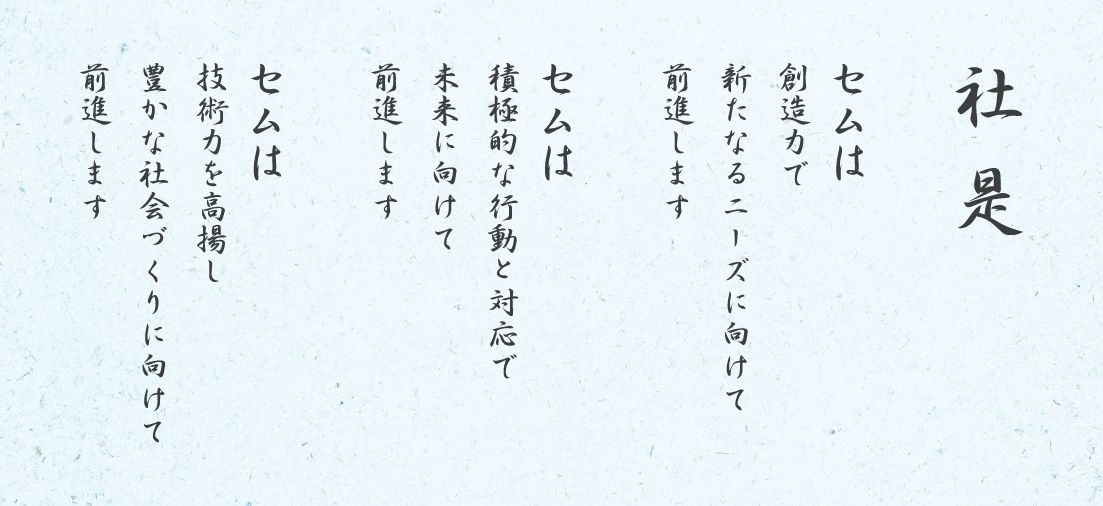 社是
セムは
創造力で
新たなるニーズに向けて
前進します
セムは
積極的な行動と対応で
未来に向けて
前進します
セムは
技術力を高揚し
豊かな社会づくりに向けて
前進します